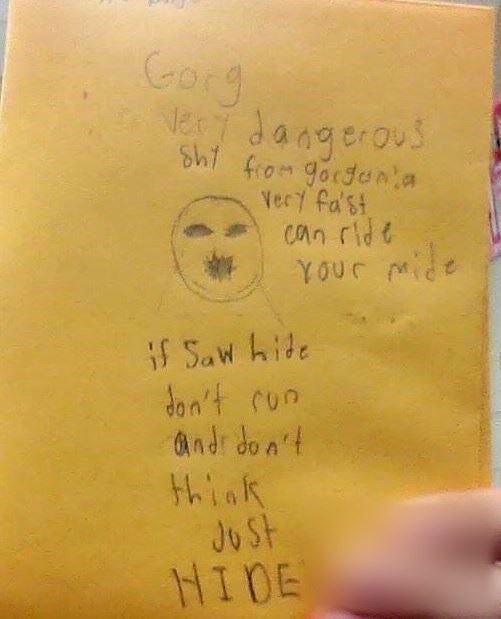 Gorg
very dangerous
shy from gorgonia
very fast
can ride
your mide
if saw hide
don't run
and don't
think
Just
HIDE